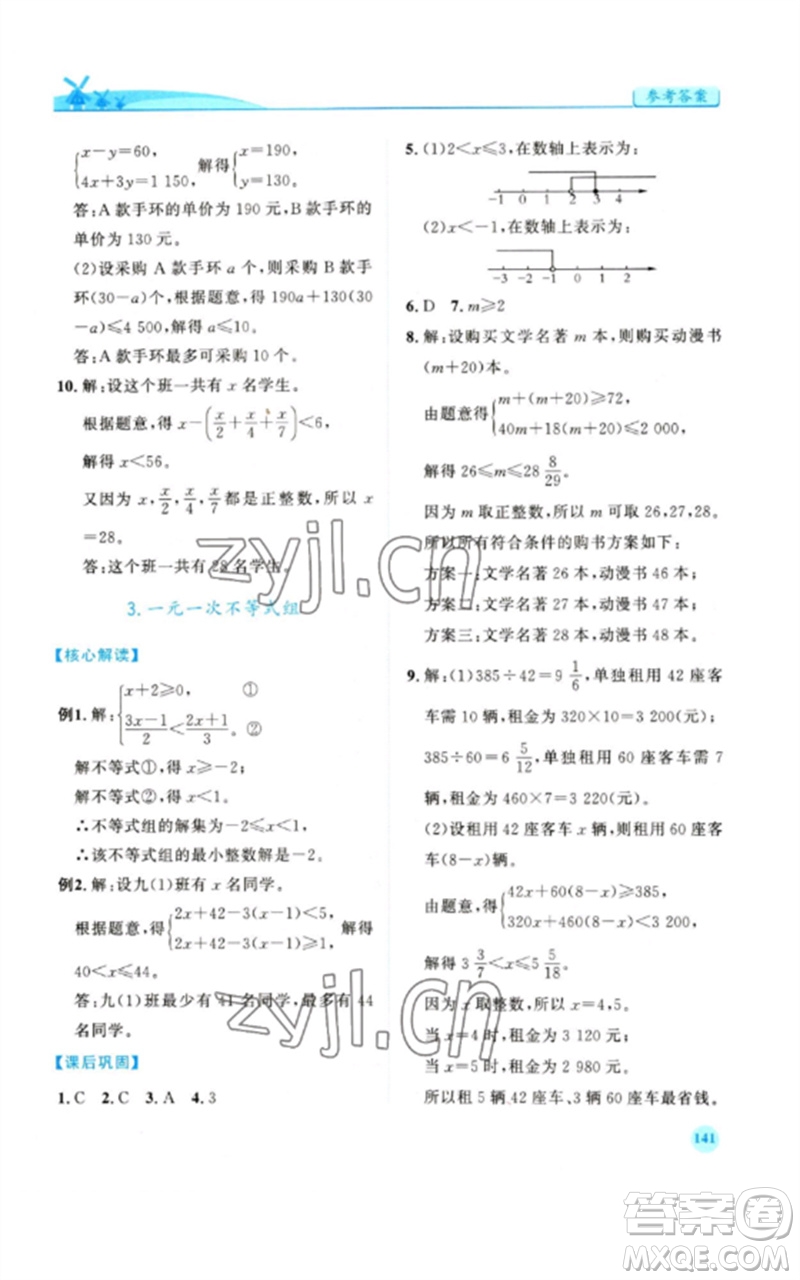 参考答案
{x－y=60,
4x+3y=1 150, 解得{x=190,
y=130.
答:A 款手环的单价为 190 元,B 款手环的
单价为 130 元。
(2)设采购 A 款手环 a 个,则采购 B 款手
环(30－a)个,根据题意,得 190a+130(30
－a)≤4 500,解得 a≤10。
答:A 款手环最多可采购 10 个。
10. 解:设这个班一共有 x 名学生。
根据题意,得 x－(x/2+x/4+x/7)<6,
解得 x<56。
又因为 x,x/2,x/4,x/7都是正整数,所以 x
=28。
答:这个班一共有 28 名学生。
3. 一元一次不等式组
【核心解读】
例1. 解:{x+2≥0, ①
(3x－1)/2<(2x+1)/3。②
解不等式①,得 x≥－2;
解不等式②,得 x<1;
∴不等式组的解集为－2≤x<1;
∴该不等式组的最小整数解是－2。
例2. 解:设九(1)班有 x 名同学。
根据题意,得{2x+42－3(x－1)<5,
2x+42－3(x－1)≥1, 解得
40<x≤44。
答:九(1)班最少有 41 名同学,最多有 44
名同学。
【课后巩固】
1. C 2. C 3. A 4. 3
5. (1)2<x≤3,在数轴上表示为:
-1 0 1 2 3 4
(2)x<－1,在数轴上表示为:
-3 -2 -1 0 1 2
6. D 7. m≥2
8. 解:设购买文学名著 m 本,则购买动漫书
(m+20)本。
由题意得{m+(m+20)≥72,
40m+18(m+20)≤2 000,
解得 26≤m≤28 8/29。
因为 m 取正整数,所以 m 可取 26,27,28。
所以所有符合条件的购书方案如下:
方案一:文学名著 26 本,动漫书 46 本;
方案二:文学名著 27 本,动漫书 47 本;
方案三:文学名著 28 本,动漫书 48 本。
9. 解:(1)385÷42=9 1/6,单独租用 42 座客
车需 10 辆,租金为 320×10=3 200(元);
385÷60=6 5/12,单独租用 60 座客车需 7
辆,租金为 460×7=3 220(元)。
(2)设租用 42 座客车 x 辆,则租用 60 座客
车(8－x)辆,
由题意,得{42x+60(8－x)≥385,
320x+460(8－x)<3 200,
解得 3 3/7<x≤5 5/18。
因为 x 取整数,所以 x=4,5。
当 x=4 时,租金为 3 120 元;
当 x=5 时,租金为 2 980 元。
所以租 5 辆 42 座车、3 辆 60 座车最省钱。
141
zyjl.cn
zyjl.cn
答案卷
MXQE.COM